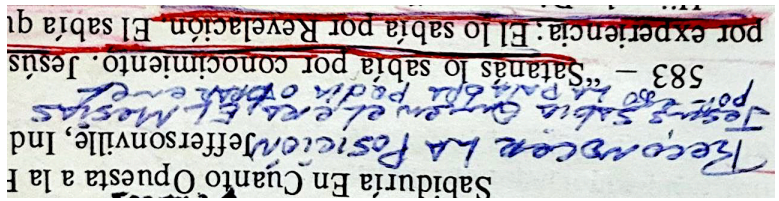 Sabiduría En Cuanto Opuesta a la F
Reconocer LA Posición Jeffersonville, Ind
Jesus Sabia Quien el era, EL Mesias
por eso LA Palabra podia obrar en el
583 – “Satanás lo sabía por conocimiento. Jesús
por experiencia; El lo sabía por Revelación. El sabía qu